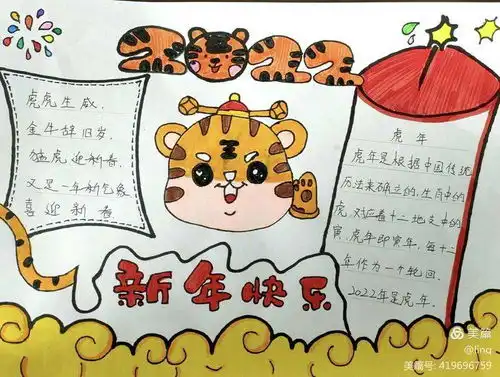 2022
虎虎生威
金牛辞旧岁.
猛虎迎新春.
又是一年新气象
喜迎新春
虎年
虎年是根据中国传统
历法来确立的,生肖中的
虎,对应着十二地支中的
寅,虎年即寅年,每十二
年作为一个轮回.
2022年是虎年.
新年快乐
美篇
@finq
美篇号: 419696759